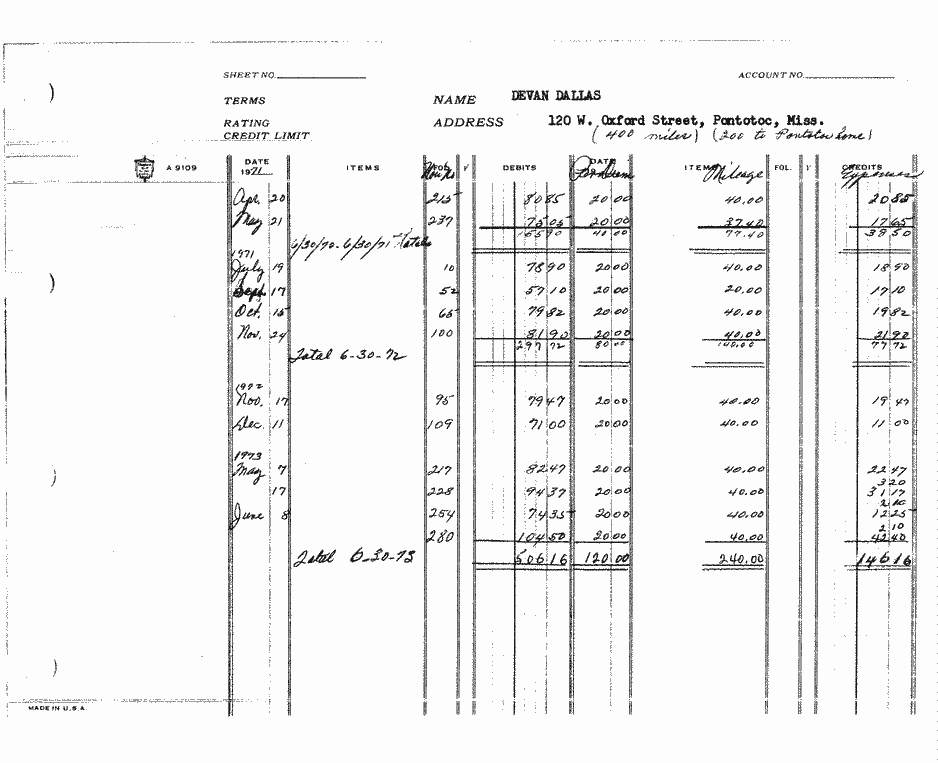 SHEET NO. ACCOUNT NO.
TERMS NAME DEVAN DALLAS
RATING ADDRESS 120 W. Oxford Street, Pontotoc, Miss.
CREDIT LIMIT (400 miles) (200 to Pontotoc home)
A 9109 DATE 1971 ITEMS FOL. √ DEBITS DATE Per Diem ITEMS Mileage FOL. √ CREDITS Expenses
Apr. 20 215 80 85 20 00 40.00 20 85
May 21 237 75 05 20 00 37.40 17 65
6/30/70-6/30/71 Totals 155 90 40 00 77.40 38 50
1971
July 19 10 78 90 20 00 40.00 18 90
Sept. 17 52 57 10 20 00 20.00 17 10
Oct. 15 65 79 82 20 00 40.00 19 82
Nov. 24 100 81 90 20 00 40.00 21 90
Total 6-30-72 297 72 80 00 140.00 77 72
1972
Nov. 17 95 79 47 20 00 40.00 19 47
Dec. 11 109 71 00 20 00 40.00 11 00
1973
May 7 217 82 47 20 00 40.00 22 47
3 20
17 228 94 37 20 00 40.00 31 17
2 10
June 8 254 74 35 20 00 40.00 12 25
2 10
280 104 50 20 00 40.00 42 40
Total 6-30-73 506 16 120.00 240.00 146 16
MADE IN U.S.A.